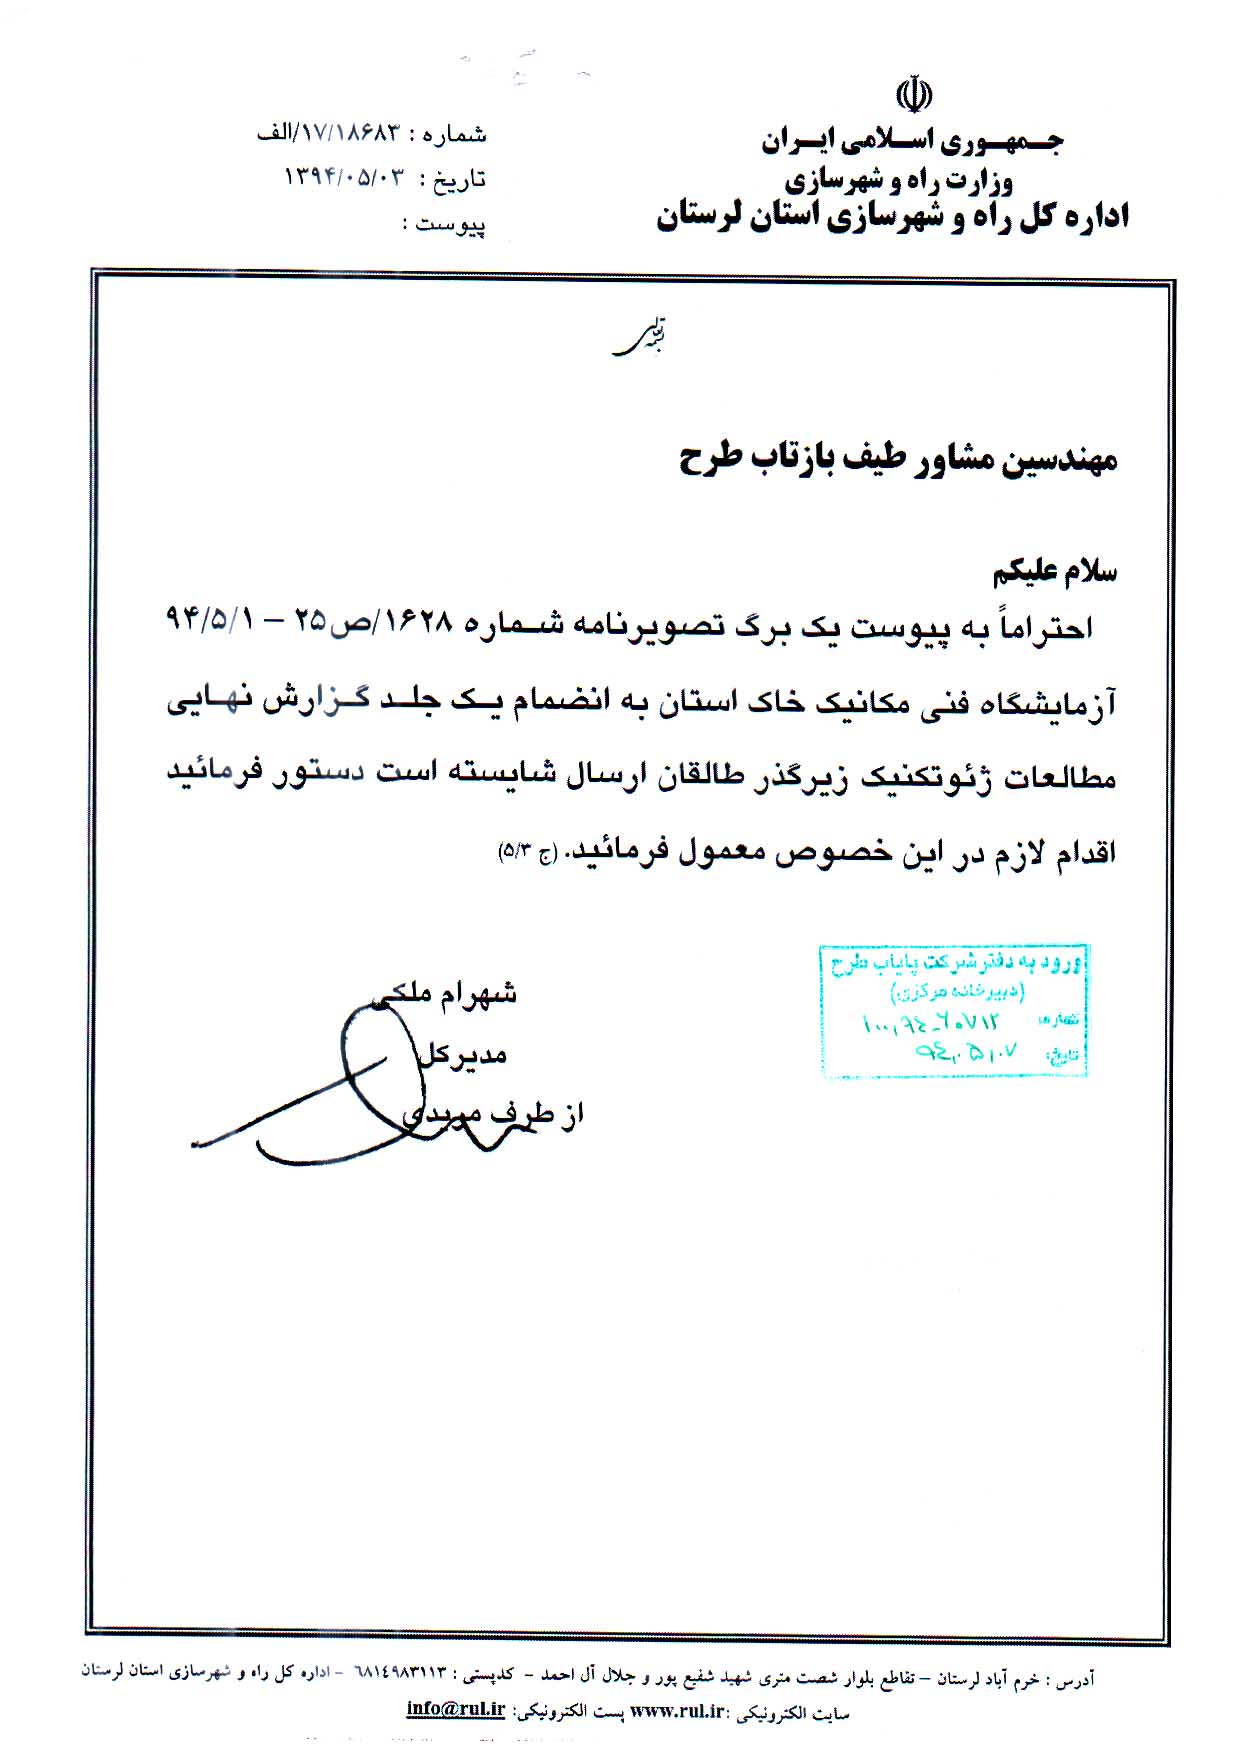 جمهوری اسلامی ایران
وزارت راه و شهرسازی
اداره کل راه و شهرسازی استان لرستان
شماره : ۱۷/۱۸۶۸۳/الف
تاریخ : ۱۳۹۴/۰۵/۰۳
پیوست :
بسمه تعالی
مهندسین مشاور طیف بازتاب طرح
سلام علیکم
احتراماً به پیوست یک برگ تصویرنامه شماره ۱۶۲۸/ص۲۵ – ۹۴/۵/۱
آزمایشگاه فنی مکانیک خاک استان به انضمام یک جلد گزارش نهایی
مطالعات ژئوتکنیک زیرگذر طالقان ارسال شایسته است دستور فرمائید
اقدام لازم در این خصوص معمول فرمائید. (ج ۵/۳)
شهرام ملکی
مدیرکل
از طرف مریدی
ورود به دفتر شرکت پایاب طرح
(دبیرخانه مرکزی)
شماره:
تاریخ: ۹۴،۰۵،۰۷
آدرس : خرم آباد لرستان – تقاطع بلوار شصت متری شهید شفیع پور و جلال آل احمد – کدپستی : ۶۸۱۴۹۸۳۱۱۳ – اداره کل راه و شهرسازی استان لرستان
سایت الکترونیکی :www.rul.ir پست الکترونیکی: info@rul.ir